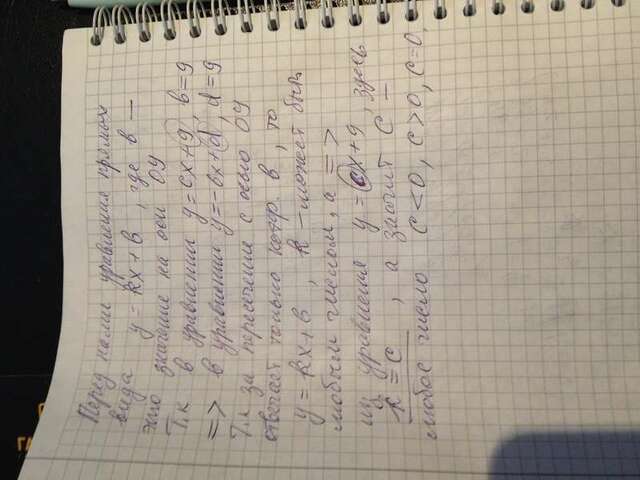 Перед нами уравнения прямых
вида y = kx + b, где b —
это значение на оси OY
Т.к в уравнении y = cx + 9, b = 9
=> в уравнении y = -bx + d, d = 9
Т.к за пересечение с осью OY
отвечает только коэф. b, то
y = kx + b, k - может быть
любым числом, а =>
из уравнения y = cx + 9, здесь
k = c, а значит c —
любое число c < 0, c > 0, c = 0,